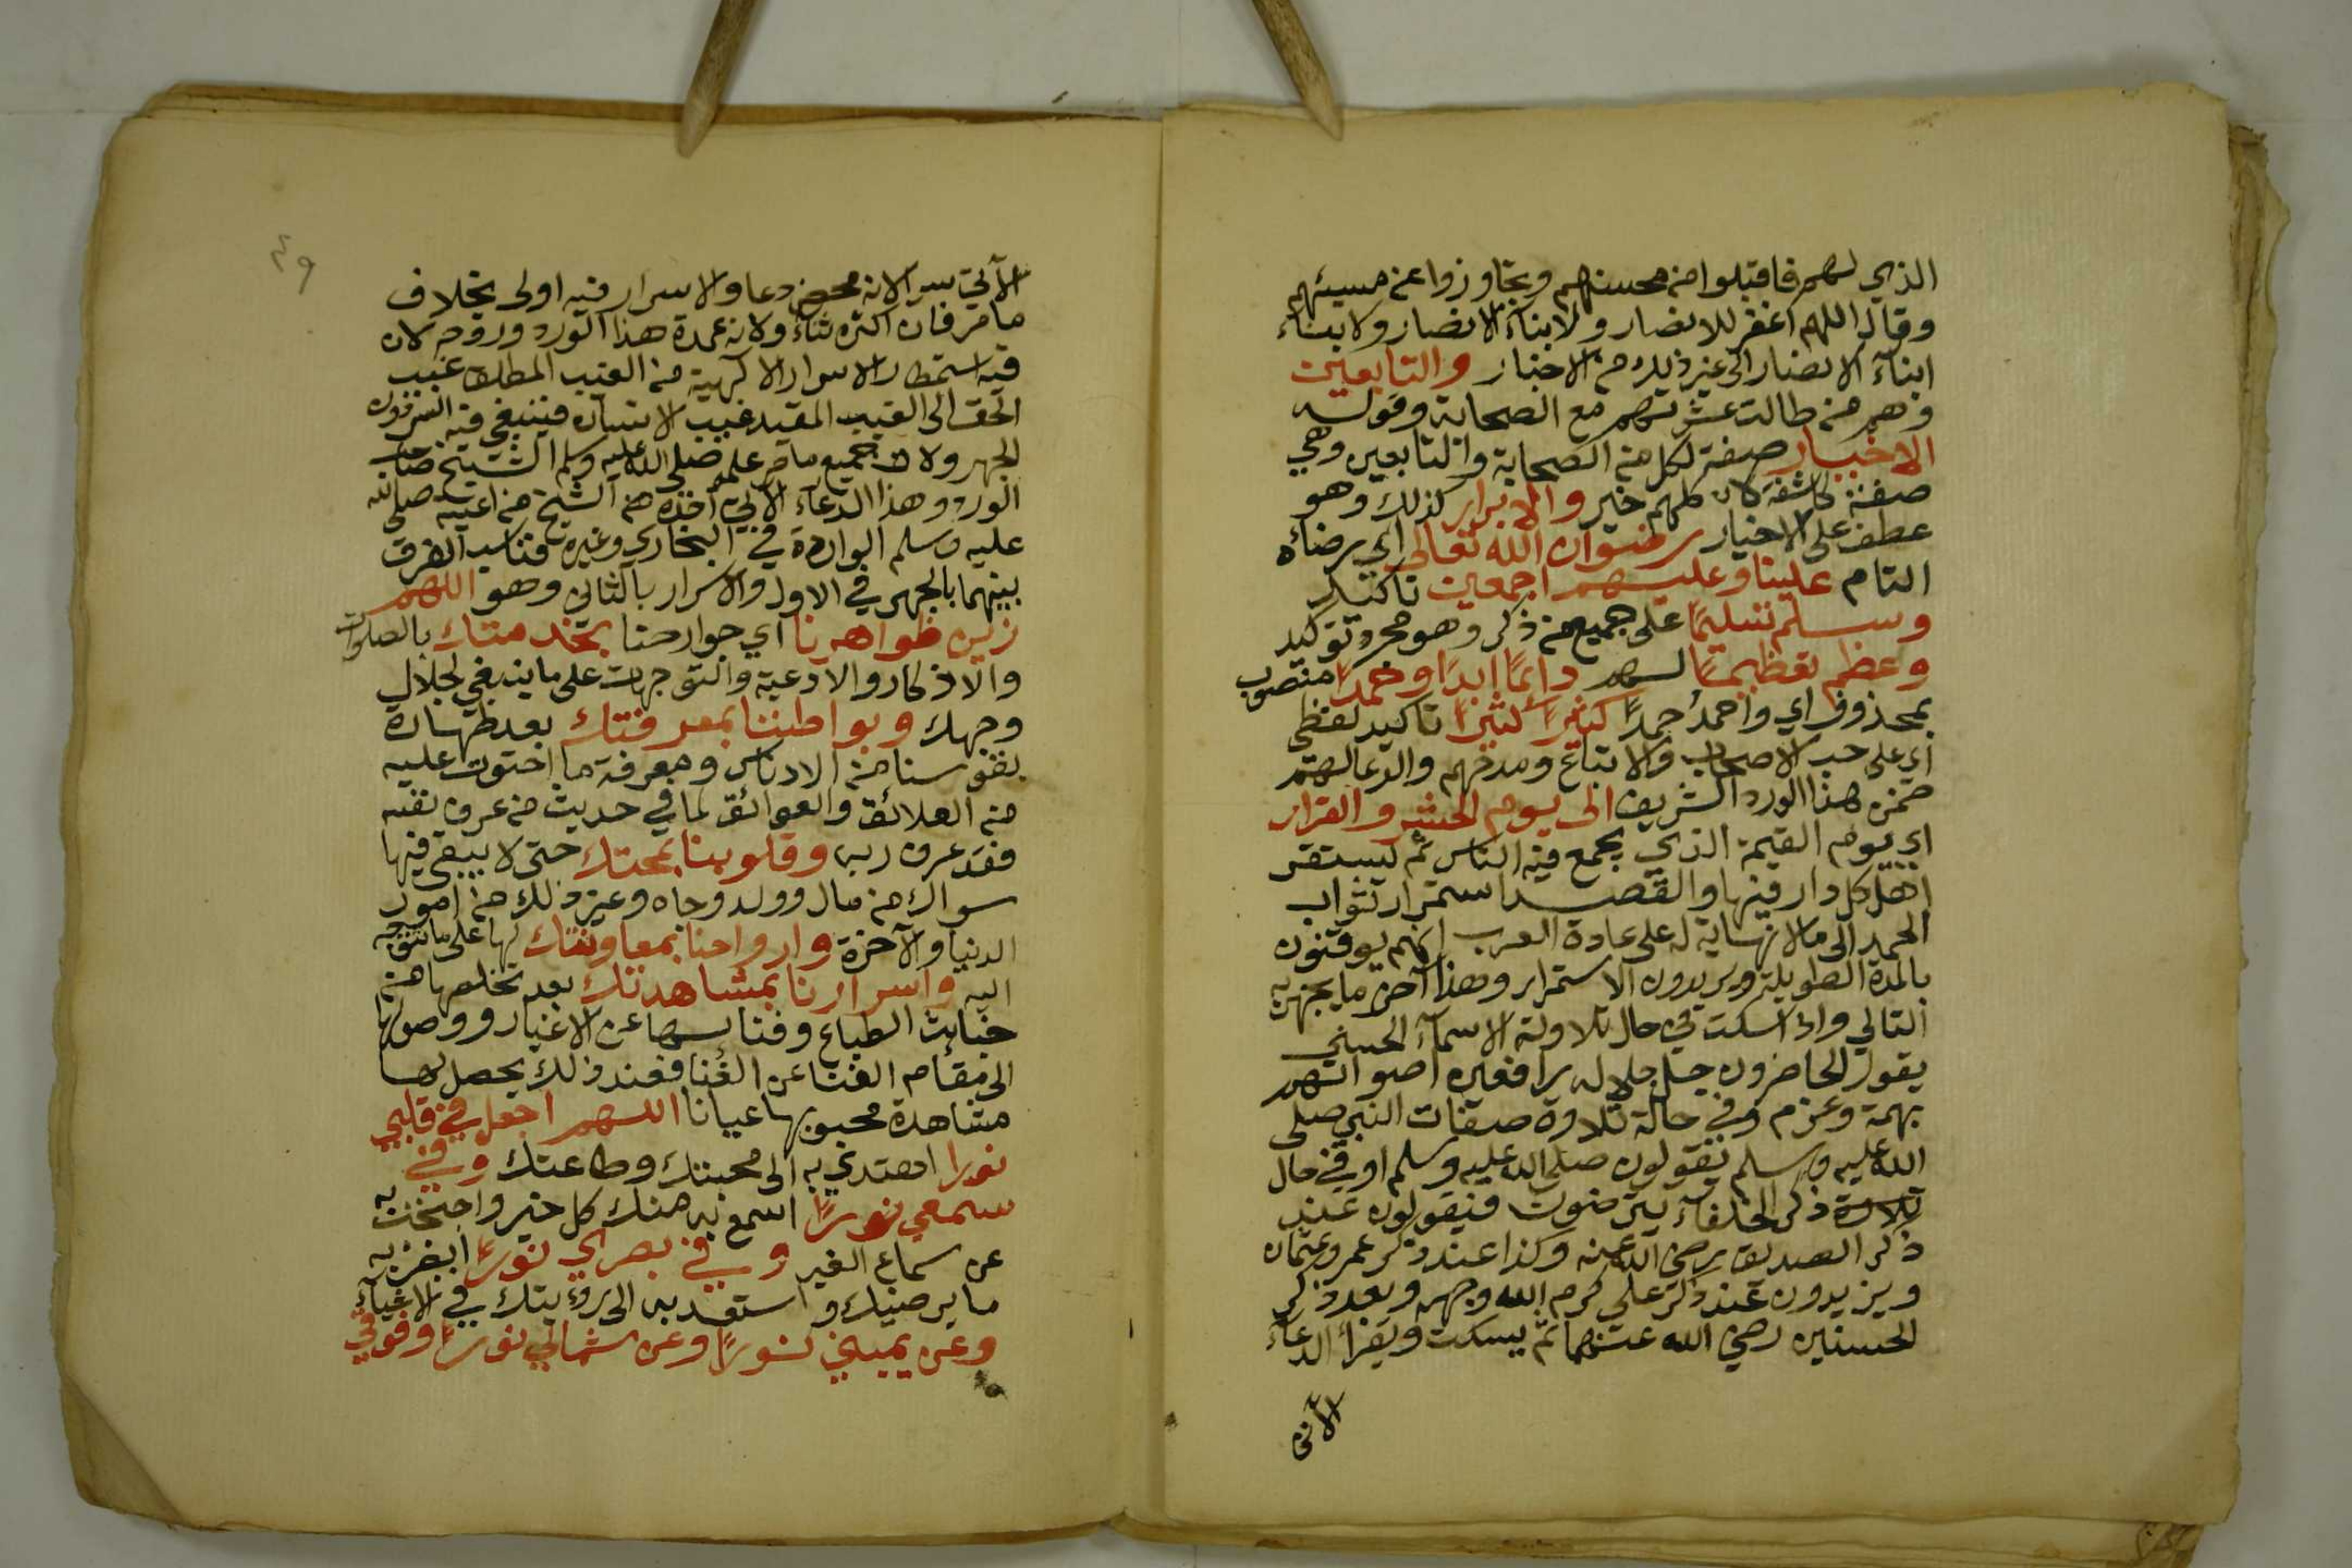 الذي لهم فاقبلوا من محسنهم وتجاوزوا عن مسيئهم
وقال اللهم اغفر للانصار ولابناء الانصار ولابناء
ابناء الانصار الى غير ذلك من الاخبار والتابعين
وهم من طالت عشرتهم مع الصحابة وقوله
الاخيار صفة لكل من الصحابة والتابعين وهي
صفة كاشفة لان كلهم خير والابرار كذلك وهو
عطف على الاخيار رضوان الله تعالى اي رضاه
التام علينا وعليهم اجمعين تاكيد
وسلم تسليما على جميع من ذكر وهو مجرد توكيد
وعظم تعظيما لهم دائما ابدا وحمدا منصوب
بمحذوف اي واحمد حمدا كثيرا كثيرا تاكيد لفظي
اي على حب الاصحاب والاتباع ومدحهم والدعا لهم
ضمن هذا الورد الشريف الى يوم الحشر والقرار
اي يوم القيمة الذي يجمع فيه الناس ثم ليستقر
اهل كل دار فيها والقصد استمرار ثواب
الحمد الى مالا نهاية له على عادة العرب انهم يوقتون
بالمدة الطويلة ويريدون الاستمرار وهذا آخر ما يجهر به
التالي واذا سكت في حال تلاوة الاسماء الحسني
يقول الحاضرون جل جلاله رافعين اصواتهم
بهمة وعزم وفي حالة تلاوة صفات النبي صلى
الله عليه وسلم يقولون صلى الله عليه وسلم او في حال
تلاوة ذكر الخلفاء يترضوت فيقولون عند
ذكر الصديق رضي الله عنه وكذا عند ذكر عمر وعثمان
ويزيدون عند ذكر علي كرم الله وجهه وبعد ذكر
الحسنين رضي الله عنهما ثم يسكت ويقرأ الدعاء
الآتى
٤٩
الآتي سرا لانه محض دعا والاسرار فيه اولى بخلاف
ما مر فان اكثره ثناء ولانه عمدة هذا الورد وروحه لان
فيه استمطار الاسرار الالهية من الغيب المطلق غيب
الحق الى الغيب المقيد غيب الانسان فينبغي فيه السر دون
الجهر ولان جميع ما مر علمه صلى الله عليه وسلم الشيخ صاحب
الورد وهذا الدعاء الآتي اخذه من الشيخ من ادعيته صلى الله
عليه وسلم الواردة في البخاري وغيره فناسب الفرق
بينهما بالجهر في الاول والاسرار بالثاني وهو اللهم
زين ظواهرنا اي جوارحنا بخدمتك بالصلوات
والاذكار والادعية والتوجهات على ما ينبغي لجلال
وجهك وبواطننا بمعرفتك بعد طهارة
نفوسنا من الادناس ومعرفة ما احتوت عليه
من العلائق والعوائق لما في حديث من عرف نفسه
فقد عرف ربه وقلوبنا بمحبتك حتى لا يبقى فيها
سواك من مال وولد وجاه وغير ذلك من امور
الدنيا والآخرة وارواحنا بمعاونتك لها على ما تتوجه
اليه واسرارنا بمشاهدتك بعد تخلصها من
خبايث الطباع وفنائها عن الاغيار ووصولها
الى مقام الفنا عن الفنا فعند ذلك يحصل لها
مشاهدة محبوبها عيانا اللهم اجعل في قلبي
نورا اهتدي به الى محبتك وطاعتك وفي
سمعي نورا اسمع به منك كل خير واجتخت به
عن سماع الغير وفي بصري نورا ابصر به
ما يرضيك واستعد به الى رؤيتك في الاشياء
وعن يميني نورا وعن شمالي نورا وفوقي